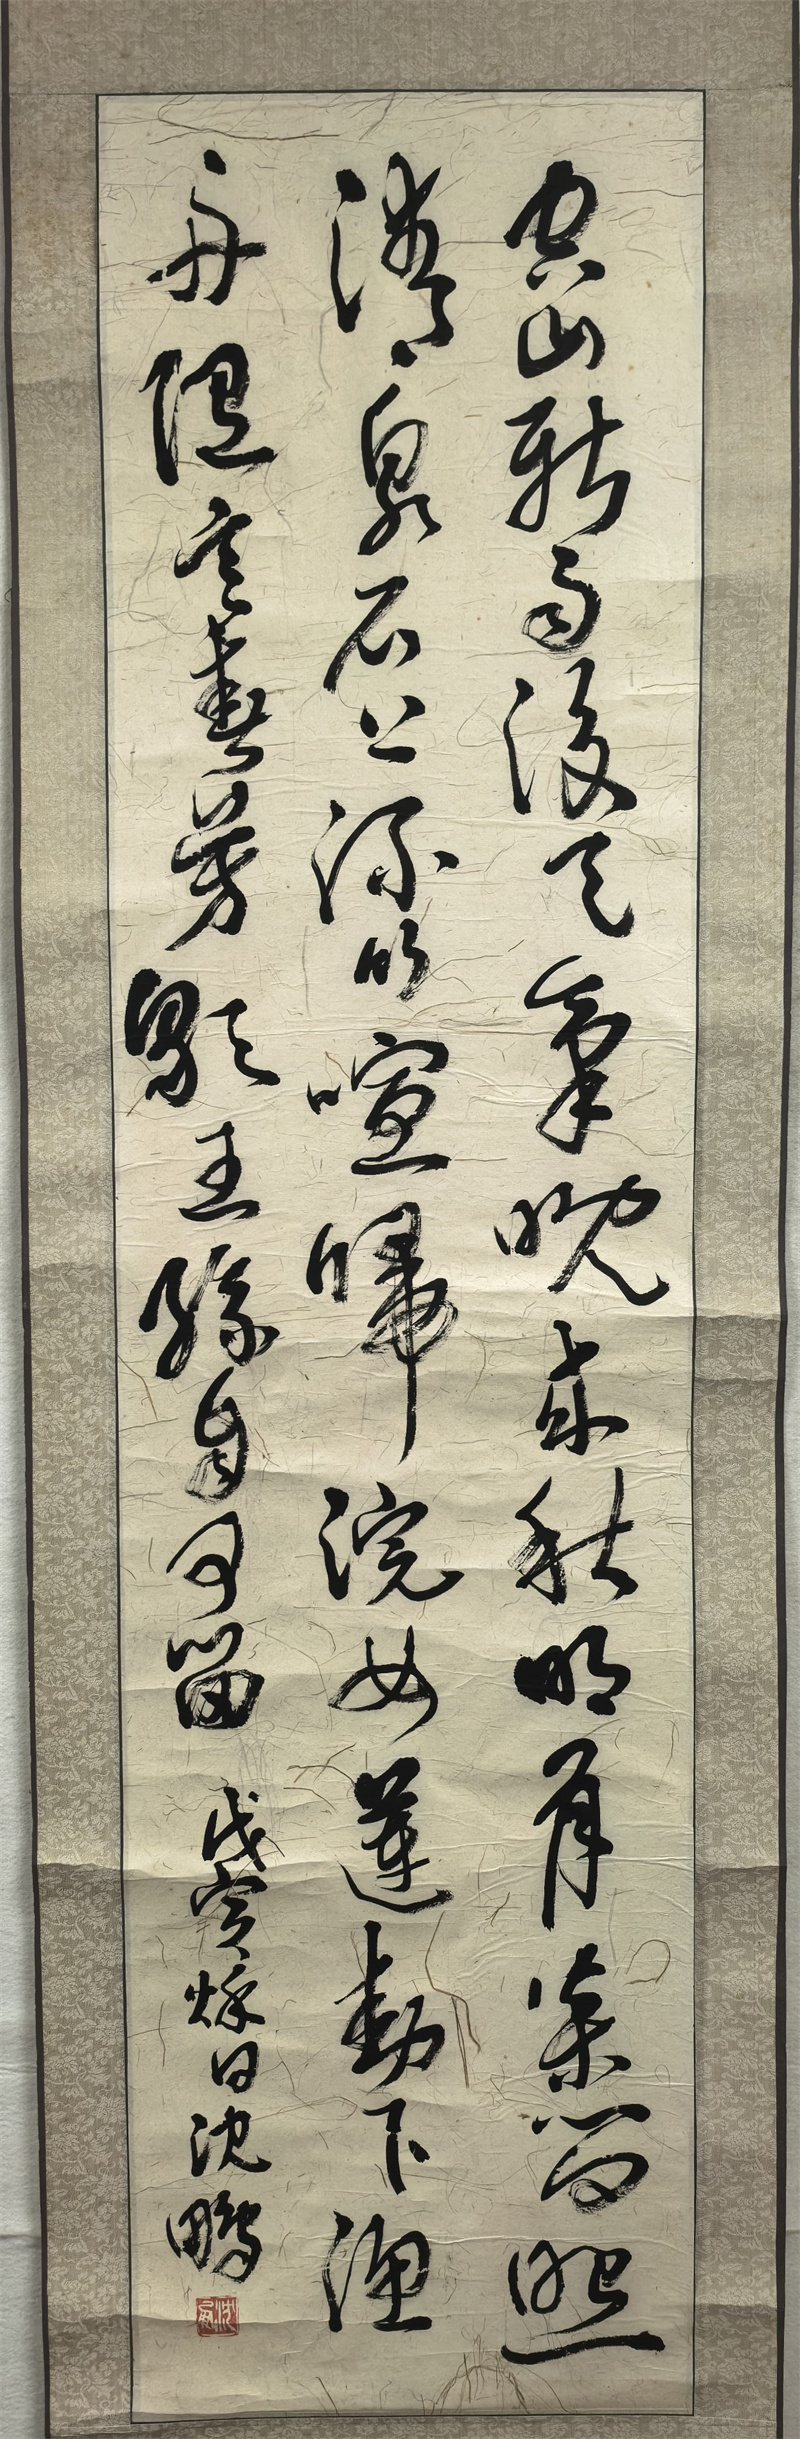 空山新雨後天氣晚來秋明月松間照
清泉石上流竹喧歸浣女蓮動下漁
舟隨意春芳歇王孫自可留 戊寅秋日沈鵬
沈鵬